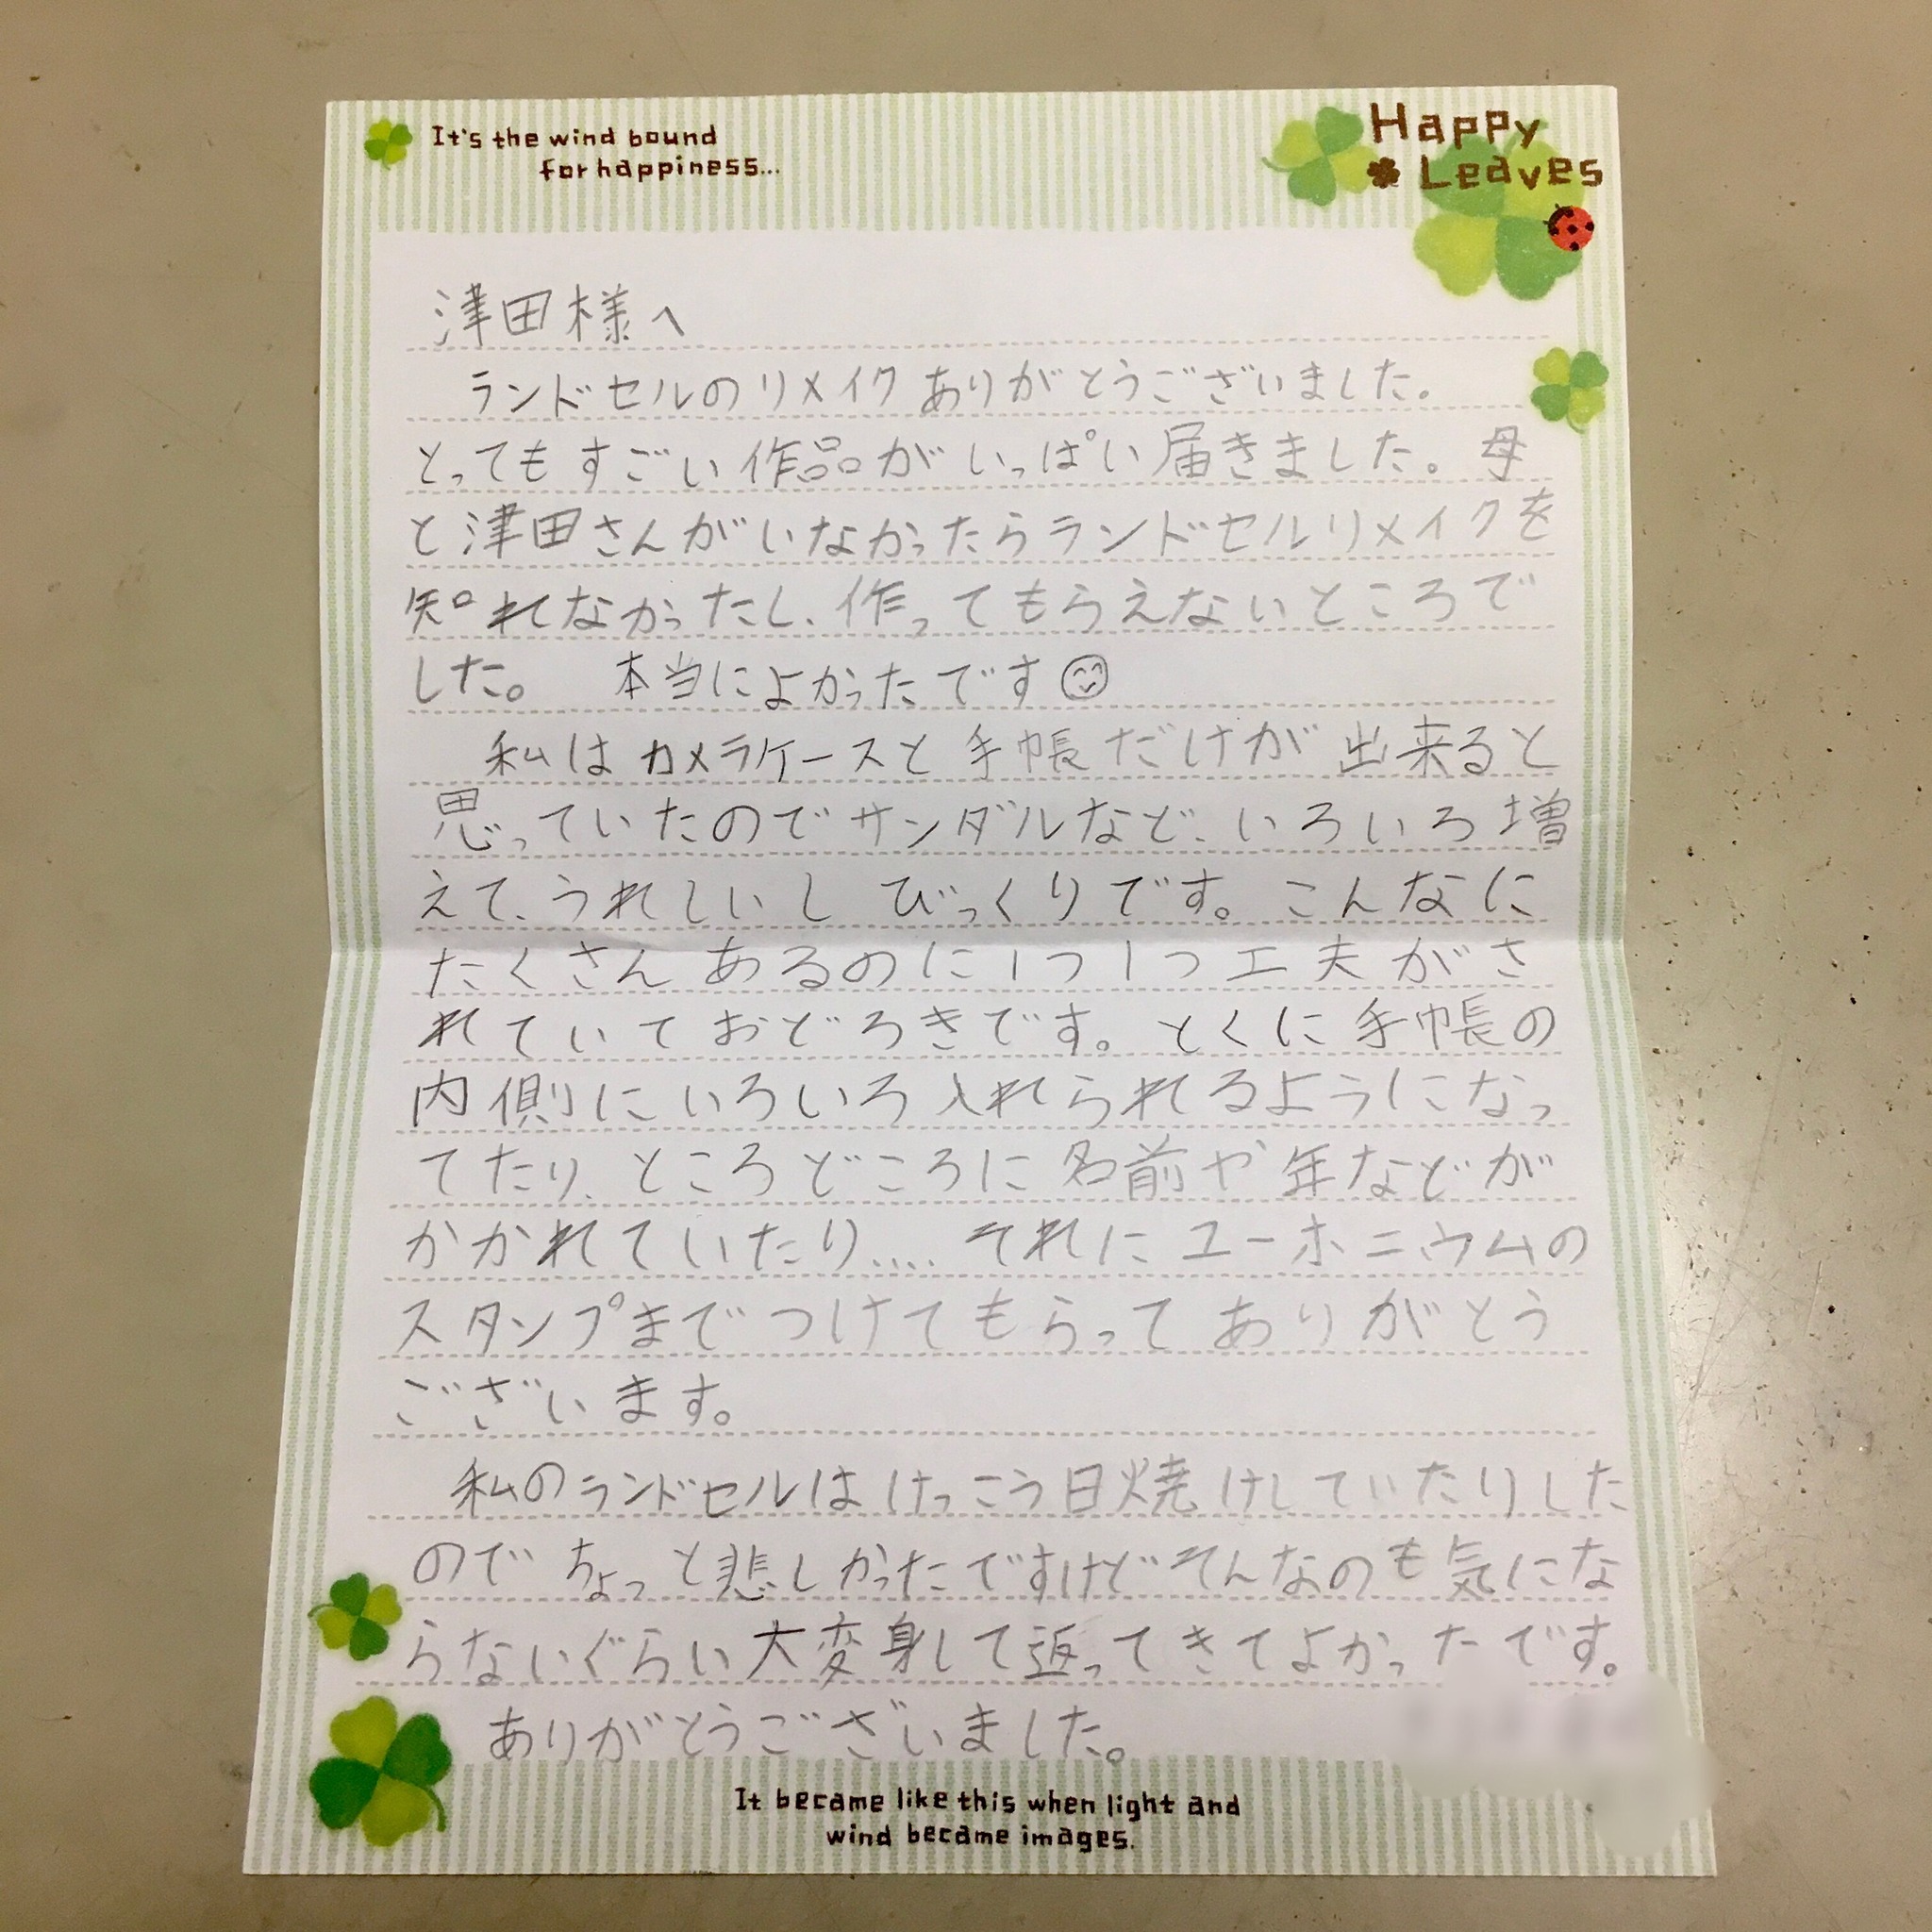 It's the wind bound
for happiness...
Happy
Leaves
津田様へ
ランドセルのリメイクありがとうございました。
とってもすごい作品がいっぱい届きました。母
と津田さんがいなかったらランドセルリメイクを
知れなかったし、作ってもらえないところで
した。 本当によかったです😊
私はカメラケースと手帳だけが出来ると
思っていたのでサンダルなど、いろいろ増
えて、うれしいし びっくりです。こんなに
たくさんあるのに1つ1つ工夫がさ
れていておどろきです。とくに手帳の
内側にいろいろ入れられるようになっ
てたり、ところどころに名前や年などが
かかれていたり.... それにユーホニウムの
スタンプまでつけてもらってありがとう
ございます。
私のランドセルはけっこう日焼けしていたりした
のでちょっと悲しかったですけどそんなのも気にな
らないぐらい大変身して返ってきてよかったです。
ありがとうございました。
It became like this when light and
wind became images.